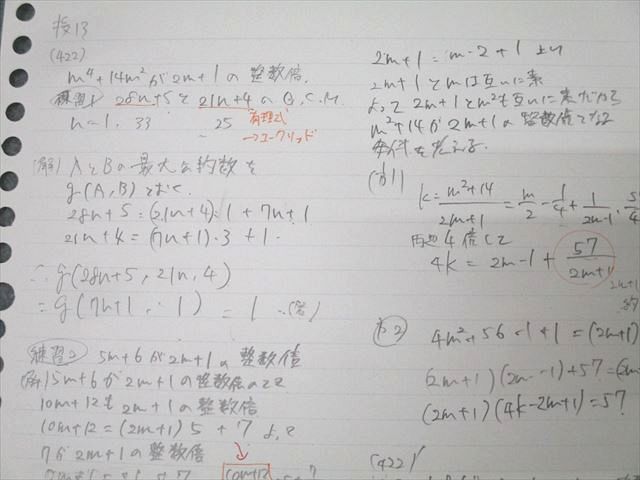 授13
(422)
m⁴+14m²が2m+1の整数倍.
練習1 28n+5と21n+4のG.C.M.
n=1. 33 25 有理式
→ユークリッド
(解) AとBの最大公約数を
g(A,B)とおく.
28n+5=(21n+4)・1+7n+1
21n+4=(7n+1)・3+1.
∴g(28n+5, 21n,4)
=g(7n+1, 1) =1 …(答)
練習2 5m+6が2m+1の整数倍
(解)5m+6が2m+1の整数倍のとき
10m+12も2m+1の整数倍
10m+12=(2m+1)5+7より
7が2m+1の整数倍
10m+12
2m+1=m・2+1より
2m+1とmは互いに素
よって2m+1とm²も互いに素だから
m²+14が2m+1の整数倍となる
条件を考える.
k=m²+14/2m+1=m/2-1/4+1/2m+1・5
両辺4倍して
4k=2m-1+57/2m+1
2m+1
57
4m²+56-1+1=(2m+1)
(2m+1)(2m-1)+57=(2m
(2m+1)(4k-2m+1)=57
(422)